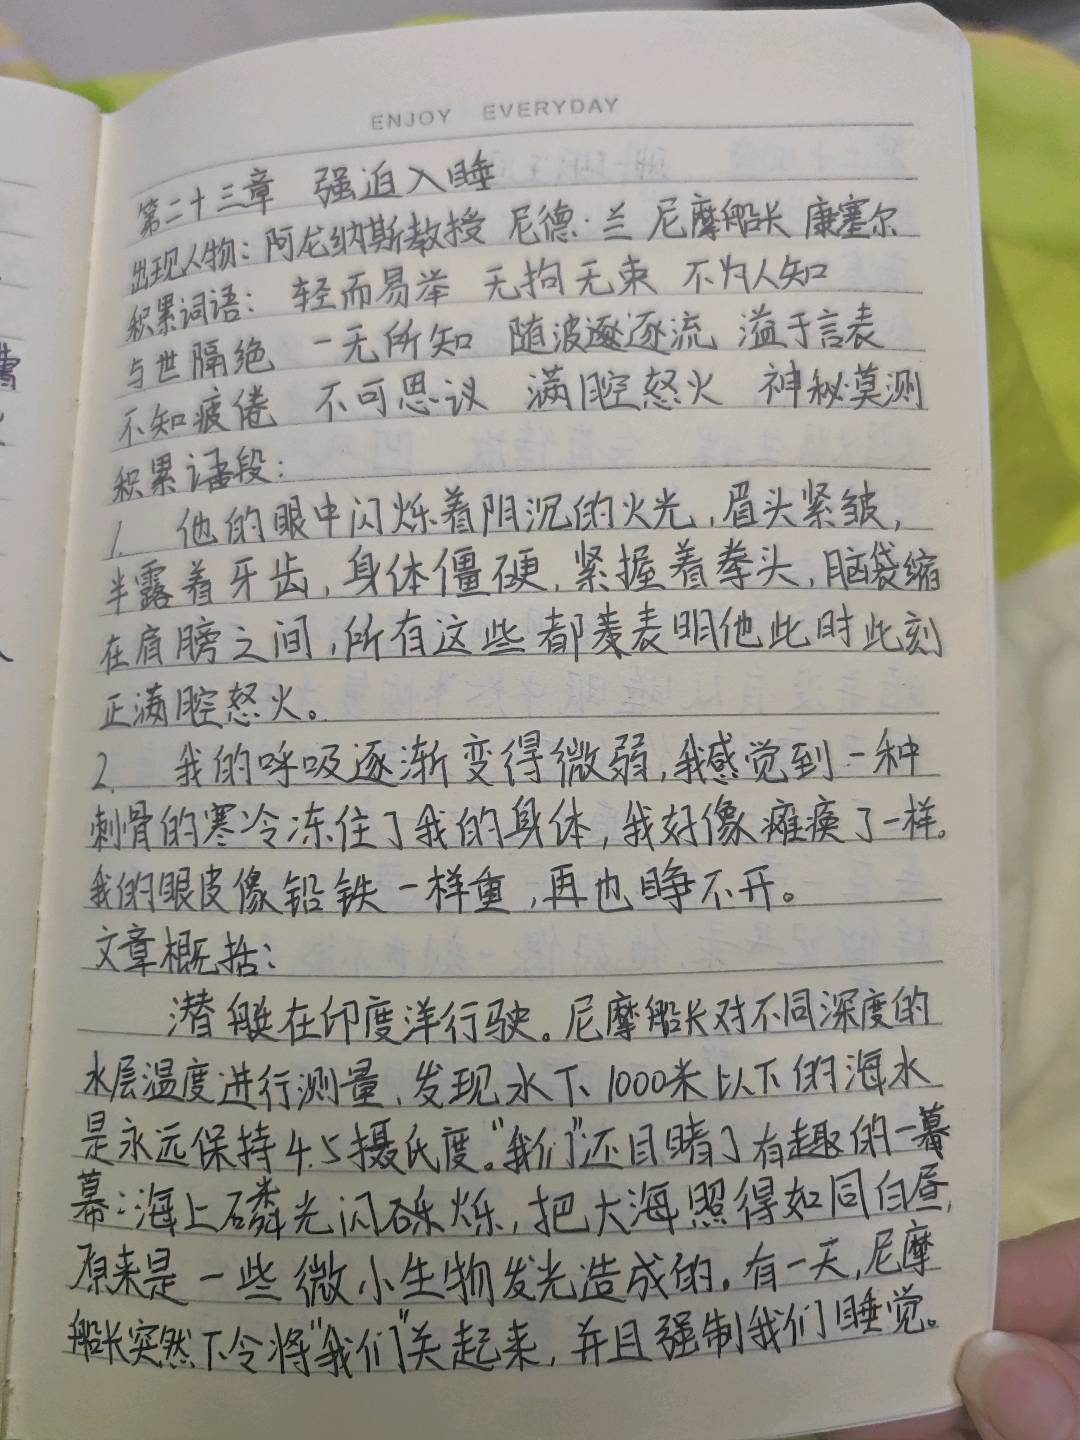 ENJOY EVERYDAY
第二十三章 强迫入睡
出现人物：阿龙纳斯教授 尼德·兰 尼摩船长 康塞尔
积累词语： 轻而易举 无拘无束 不为人知
与世隔绝 一无所知 随波逐流 溢于言表
不知疲倦 不可思议 满腔怒火 神秘莫测
积累语段：
1. 他的眼中闪烁着阴沉的火光，眉头紧皱，
半露着牙齿，身体僵硬，紧握着拳头，脑袋缩
在肩膀之间，所有这些都表明他此时此刻
正满腔怒火。
2. 我的呼吸逐渐变得微弱，我感觉到一种
刺骨的寒冷冻住了我的身体，我好像瘫痪了一样。
我的眼皮像铅铁一样重，再也睁不开。
文章概括：
潜艇在印度洋行驶。尼摩船长对不同深度的
水层温度进行测量，发现水下1000米以下的海水
是永远保持4.5摄氏度。“我们”还目睹了有趣的一幕
幕：海上磷光闪烁，把大海照得如同白昼，
原来是一些微小生物发光造成的。有一天，尼摩
船长突然下令将“我们”关起来，并且强制我们睡觉。